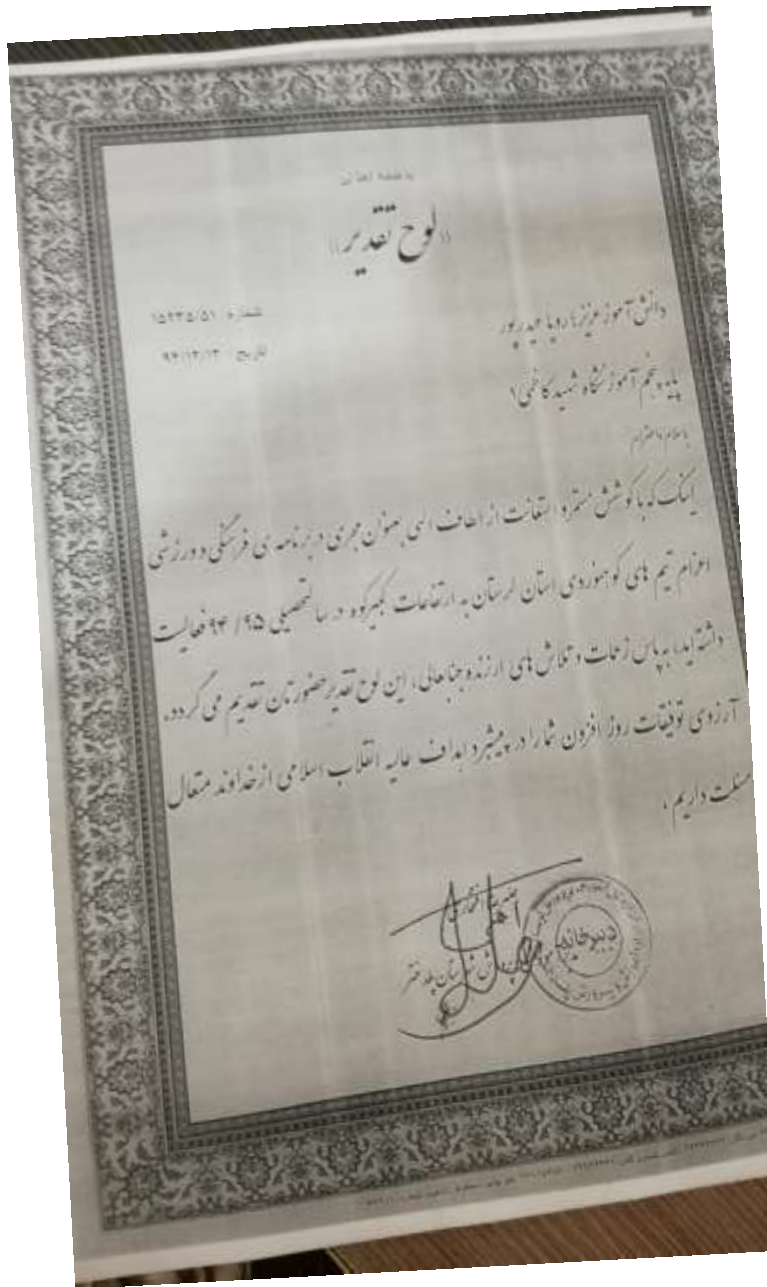 باسمه تعالی
((لوح تقدیر))
شماره: ۱۵۲۳۵/۵۱
تاریخ: ۹۴/۱۲/۱۳
دانش آموز عزیز: رویا حیدرپور
پایه پنجم آموزشگاه شهید کاظمی ۱
باسلام واحترام
اینک که با کوشش مستمر و استعانت از الطاف الهی بعنوان مجری در برنامه ی فرهنگی و ورزشی
اعزام تیم های کوهنوردی استان لرستان به ارتفاعات کبیرکوه در سالتحصیلی ۹۵/ ۹۴ فعالیت
داشته اید، به پاس زحمات و تلاش های ارزنده جنابعالی، این لوح تقدیر حضورتان تقدیم می گردد.
آرزوی توفیقات روز افزون شما را در پیشبرد اهداف عالیه انقلاب اسلامی از خداوند متعال
مسئلت داریم .
دبیرخانه
شهرستان پلدختر